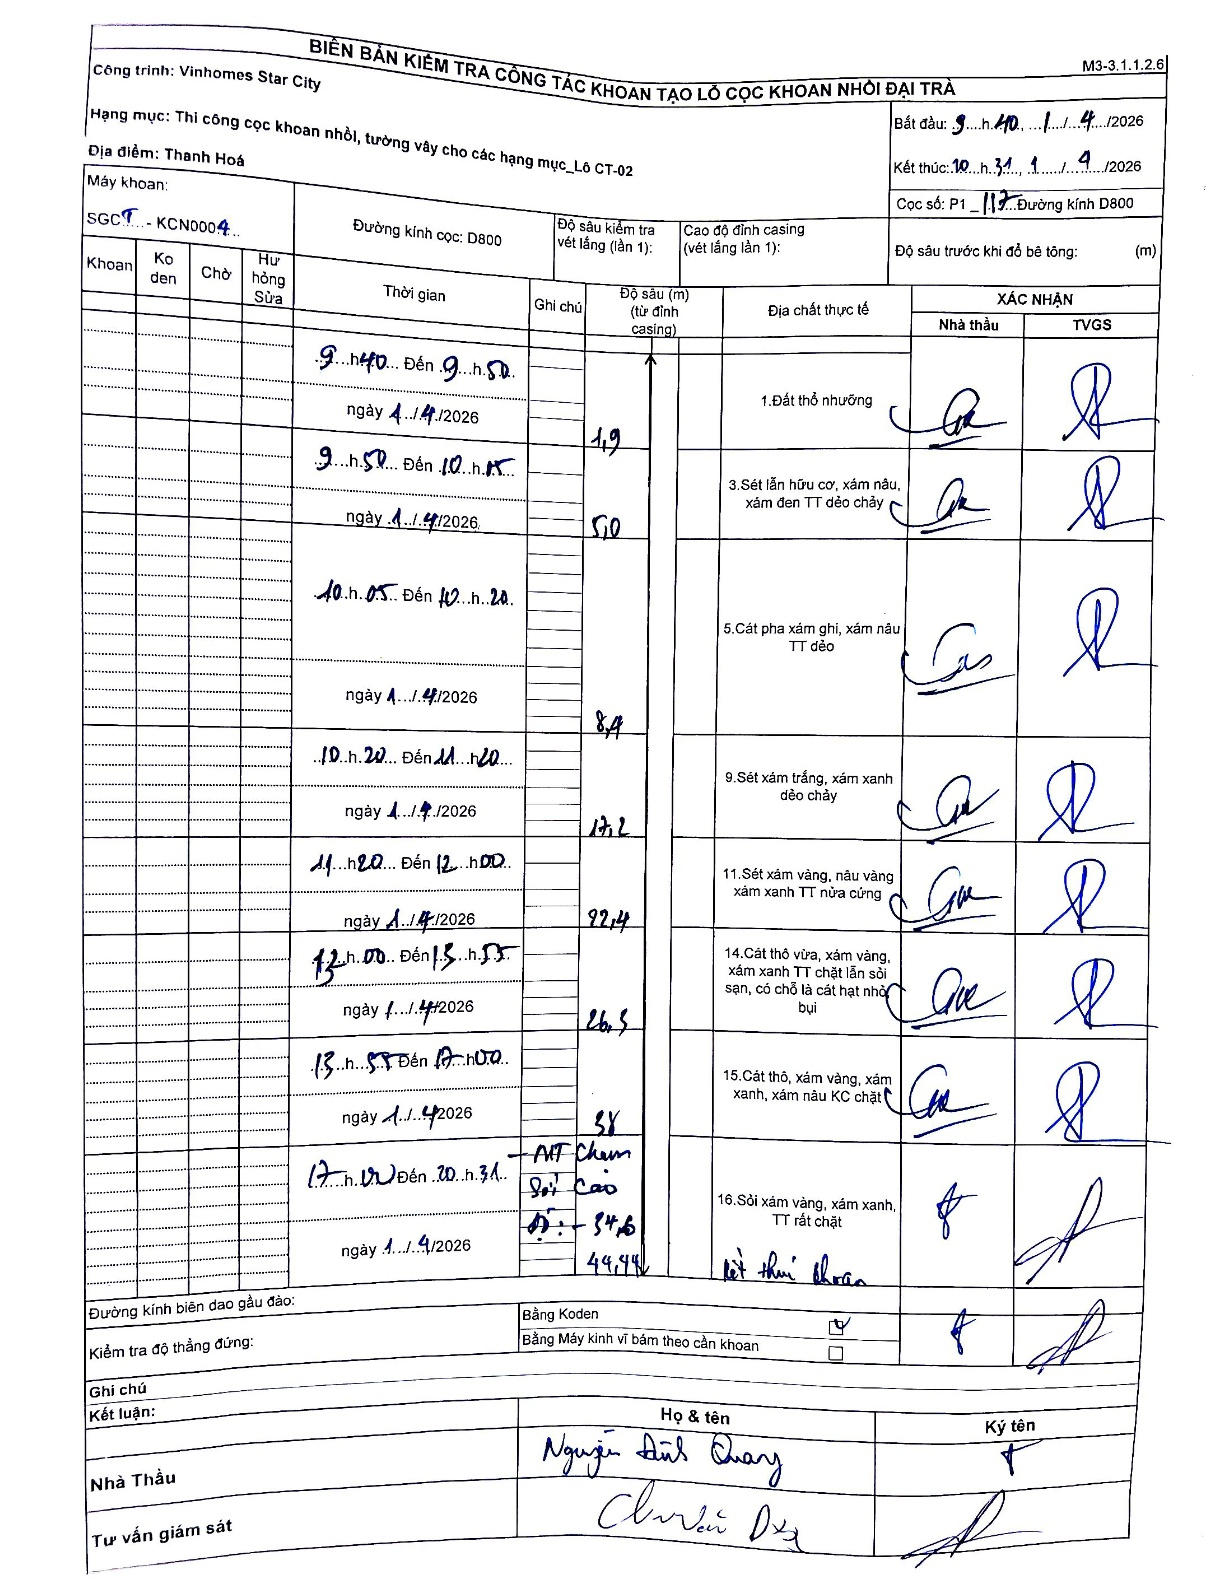 BIÊN BẢN KIỂM TRA CÔNG TÁC KHOAN TẠO LỖ CỌC KHOAN NHỒI ĐẠI TRÀ
M3-3.1.1.2.6
Công trình: Vinhomes Star City
Hạng mục: Thi công cọc khoan nhồi, tường vây cho các hạng mục_Lô CT-02
Địa điểm: Thanh Hoá
Bắt đầu: 9 h 40, 1/4/2026
Kết thúc: 20 h 31, 1/4/2026
Cọc số: P1_117 Đường kính D800
Máy khoan:
SGCT - KCN0004
Đường kính cọc: D800
Độ sâu kiểm tra vét lắng (lần 1):
Cao độ đỉnh casing (vét lắng lần 1):
Độ sâu trước khi đổ bê tông: (m)
Khoan
Ko den
Chờ
Hư hỏng Sửa
Thời gian
Ghi chú
Độ sâu (m) (từ đỉnh casing)
Địa chất thực tế
XÁC NHẬN
Nhà thầu
TVGS
9 h 40 Đến 9 h 50
ngày 1/4/2026
1,9
1.Đất thổ nhưỡng
9 h 50 Đến 10 h 05
ngày 1/4/2026
5,0
3.Sét lẫn hữu cơ, xám nâu, xám đen TT dẻo chảy
10 h 05 Đến 10 h 20
ngày 1/4/2026
8,4
5.Cát pha xám ghi, xám nâu TT dẻo
10 h 20 Đến 11 h 20
ngày 1/4/2026
17,2
9.Sét xám trắng, xám xanh dẻo chảy
11 h 20 Đến 12 h 00
ngày 1/4/2026
22,4
11.Sét xám vàng, nâu vàng xám xanh TT nửa cứng
h 00 Đến 13 h 55
ngày 1/4/2026
26,3
14.Cát thô vừa, xám vàng, xám xanh TT chặt lẫn sỏi sạn, có chỗ là cát hạt nhỏ bụi
13 h 55 Đến 17 h 00
ngày 1/4/2026
38
15.Cát thô, xám vàng, xám xanh, xám nâu KC chặt
17 h 00 Đến 20 h 31
ngày 1/4/2026
- MT Chạm
Sỏi Cao
Độ: - 34,6
44,44
16.Sỏi xám vàng, xám xanh, TT rất chặt
Kết thúc khoan
Đường kính biên dao gầu đào:
Kiểm tra độ thẳng đứng:
Bằng Koden ☑
Bằng Máy kinh vĩ bám theo cần khoan ☐
Ghi chú
Kết luận:
Họ & tên
Ký tên
Nhà Thầu
Nguyễn Đình Quang
Tư vấn giám sát